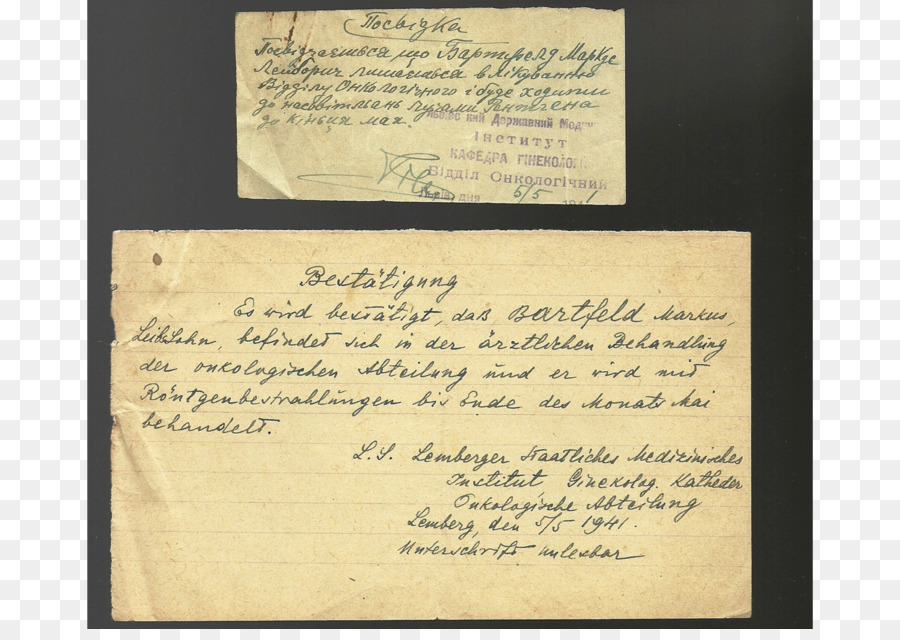 Посвідка
Посвідчається що Бартфелд Маркус
Лейбович лишається в лікуванню
Відділу Онкологічного і буде ходити
до насвітлань лучами Рентгена
до кінця мая.
Львівс кий Державний Меди
Інститут
КАФЕДРА ГІНЕКОЛОГІ
Відділ Онкологічний
Львів, дня 5/5 1941
Bestätigung
Es wird bestätigt, daß Bartfeld Markus,
Leib Sohn, befindet sich in der ärztlichen Behandlung
der onkologischen Abteilung und er wird mit
Röntgenbestrahlungen bis Ende des Monats Mai
behandelt.
L.S. Lemberger Staatliches Medizinisches
Institut Ginekolog. Katheder
Onkologische Abteilung
Lemberg, den 5/5 1941.
Unterschrift unlesbar